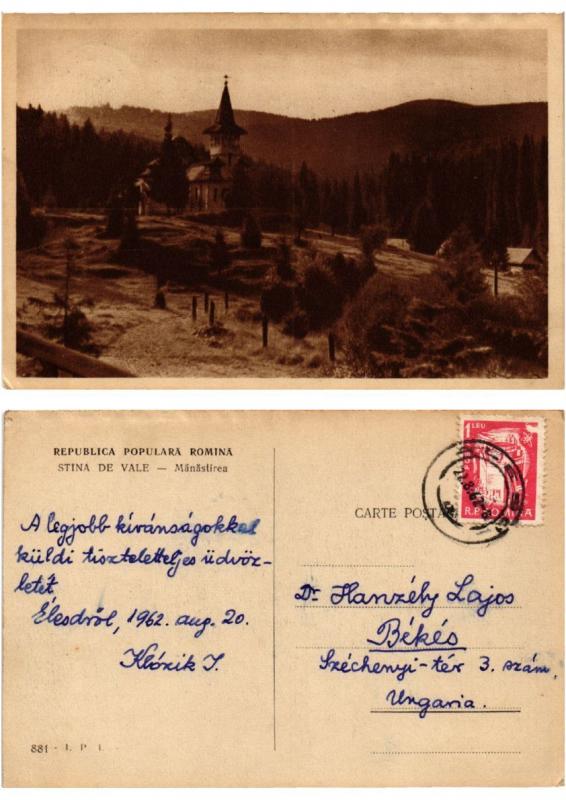 REPUBLICA POPULARĂ ROMÎNĂ
STÎNA DE VALE — Mănăstirea
A legjobb kívánságokkal
küldi tiszteletteljes üdvöz-
letét
Élesdről, 1962. aug. 20.
881 - I. P. I.
1 LEU
R.P.ROMINA
CARTE POȘTALĂ
Dr. Hanzély Lajos
Békés
Széchenyi-tér 3. szám.
Ungaria.